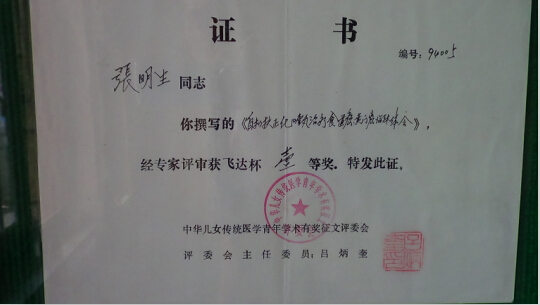 证 书
编号：94005
張明生 同志
你撰写的《自拟扶正化 治疗食 临床体会》，
经专家评审获飞达杯 壹 等奖，特发此证。
中华儿女传统医学青年学术有奖征文评委会
评委会主任委员：吕炳奎